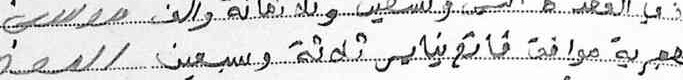 ذي القعدة اثنين وتسعين وثلاثمائة والف
هجرية موافق فاتح يناير ثلاثة وسبعين